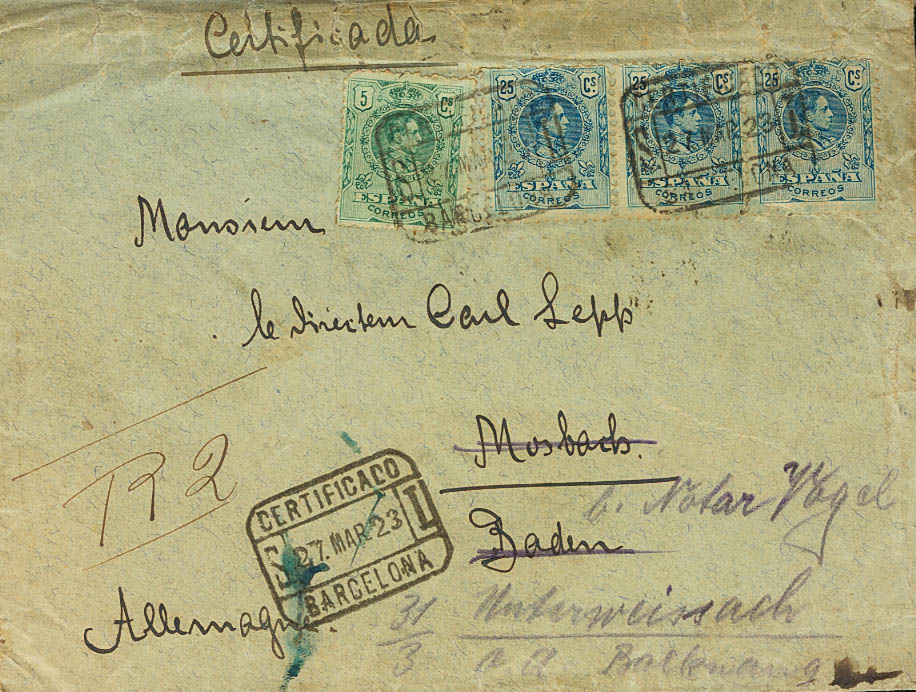 Certificada
5 Cs 25 Cs 25 Cs 25 Cs
ESPAÑA ESPAÑA ESPAÑA ESPAÑA
CORREOS CORREOS CORREOS CORREOS
BARCEL
27 MAR 23 I
Monsieur
le directeur Carl Lepp
Mosbach.
R 2
b. Notar Vogel
CERTIFICADO
27. MAR 23 I
BARCELONA
Baden
Allemagne.
31/3 Unterweissach
Backnang